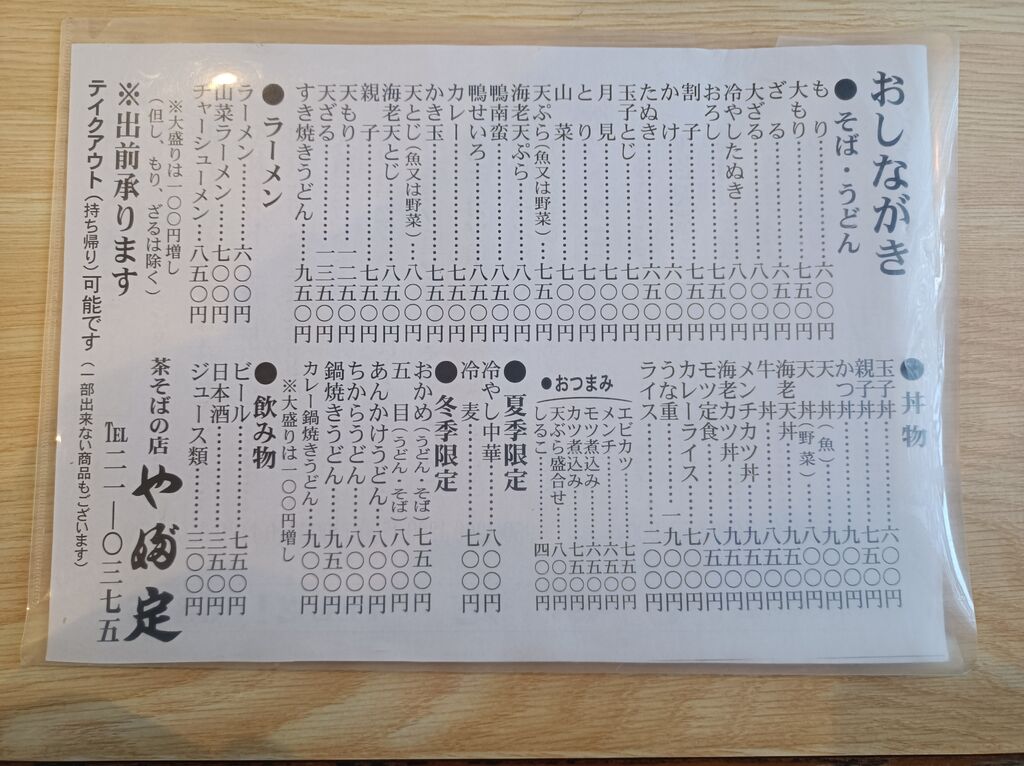 おしながき
●そば・うどん
もり……六〇〇円
大もり……七五〇円
ざる……六五〇円
大ざる……八〇〇円
冷やしたぬき……八〇〇円
おろし……七五〇円
割子……七五〇円
かけ……六〇〇円
たぬき……六五〇円
玉子とじ……七〇〇円
月見……七〇〇円
とり……七〇〇円
山菜……七〇〇円
天ぷら(魚又は野菜)…七五〇円
海老天ぷら……八〇〇円
鴨南蛮……八五〇円
鴨せいろ……八五〇円
カレー……七五〇円
かき玉……七五〇円
天とじ(魚又は野菜)…八〇〇円
海老天とじ……八五〇円
親子……七五〇円
天もり……一二五〇円
天ざる……一三五〇円
すき焼きうどん……九五〇円
●ラーメン
ラーメン……六〇〇円
山菜ラーメン……七〇〇円
チャーシューメン…八五〇円
※大盛りは一〇〇円増し
(但し、もり、ざるは除く)
※出前承ります
テイクアウト(持ち帰り)可能です(一部出来ない商品もございます)
●丼物
玉子丼……六〇〇円
親子丼……七五〇円
かつ丼……九〇〇円
天丼(魚)
天丼(野菜)
海老天丼
牛丼
メンチカツ丼……九五〇円
海老カツ丼
モツ定食……八五〇円
カレーライス
うな重……一九〇〇円
ライス……二〇〇円
●おつまみ
エビカツ……七五〇円
メンチ……六五〇円
モツ煮込み……六五〇円
カツ煮込み……七五〇円
天ぷら盛合せ……八〇〇円
しるこ……四〇〇円
●夏季限定
冷やし中華……八〇〇円
冷麦……七〇〇円
●冬季限定
おかめ(うどん・そば)七五〇円
五目(うどん・そば)八〇〇円
あんかけうどん……八〇〇円
ちからうどん……八〇〇円
鍋焼きうどん……九五〇円
カレー鍋焼きうどん…九〇〇円
※大盛りは一〇〇円増し
●飲み物
ビール……七五〇円
日本酒……三五〇円
ジュース類……三〇〇円
茶そばの店 やぶ定
TEL 二一一―〇三七五